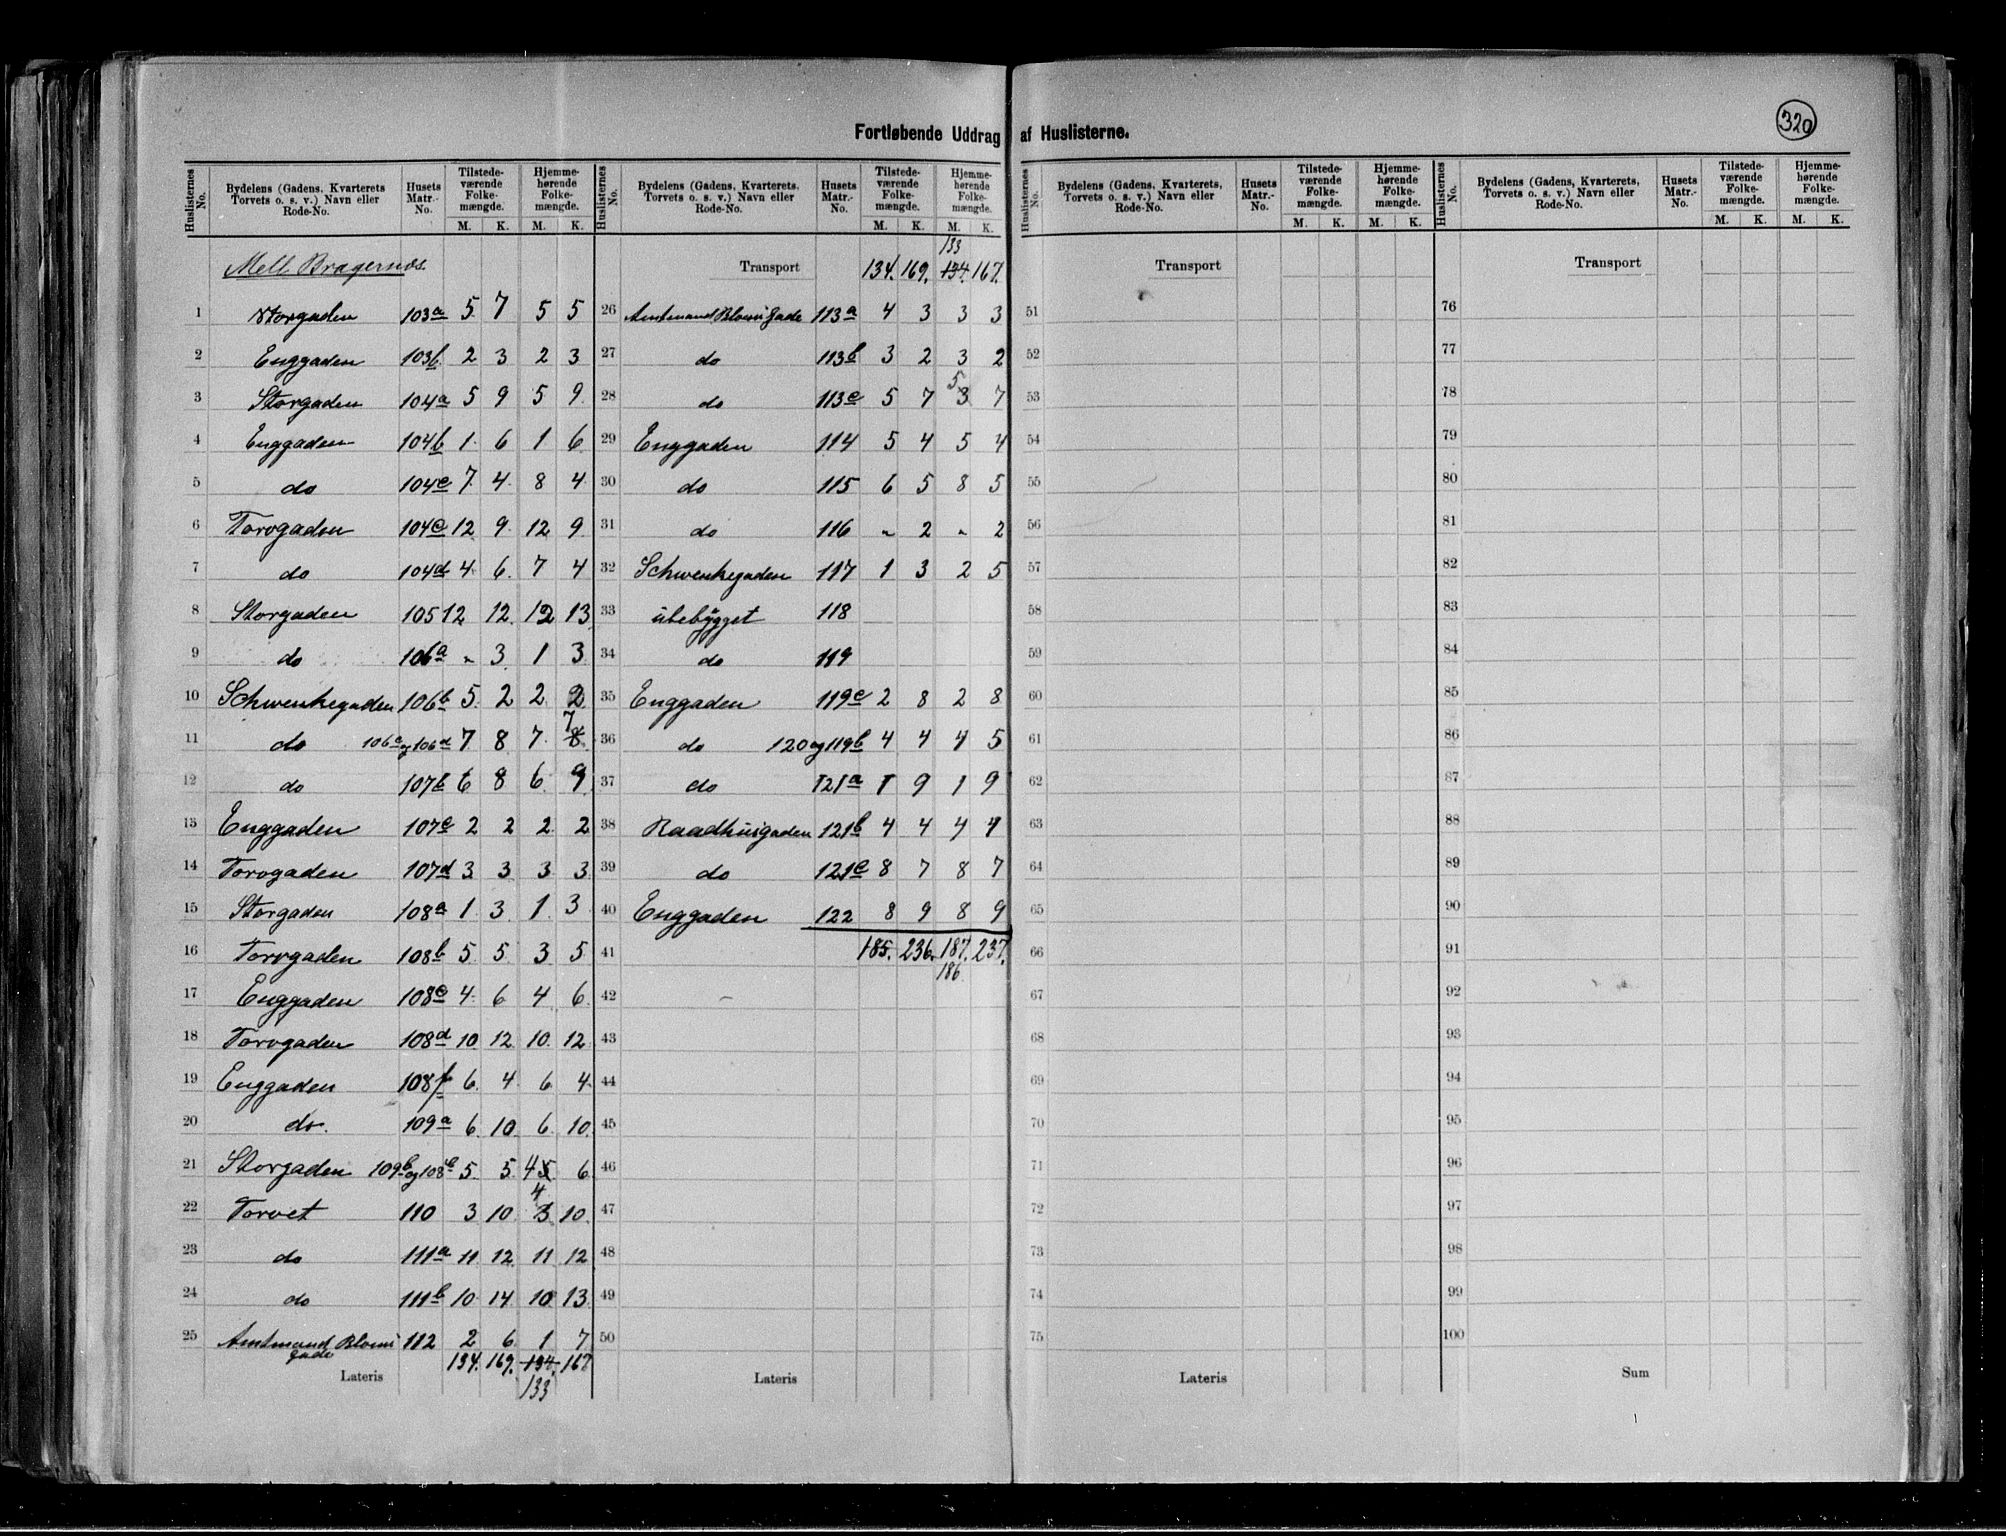 Fortløbende Uddrag af Huslisterne.
320
Huslisternes No. | Bydelens (Gadens, Kvarterets, Torvets o. s. v.) Navn eller Rode-No. | Husets Matr.-No. | Tilstedeværende Folkemængde. M. K. | Hjemmehørende Folkemængde. M. K.
Mell. Bragernæs
1 Storgaden 103a 5 7 5 5
2 Enggaden 103b 2 3 2 3
3 Storgaden 104a 5 9 5 9
4 Enggaden 104b 1 6 1 6
5 do 104c 7 4 8 4
6 Torvgaden 104e 12 9 12 9
7 do 104d 4 6 7 4
8 Storgaden 105 12 12 12 13
9 do 106a " 3 1 3
10 Schwenkegaden 106b 5 2 2 2
11 do 106c og 106d 7 8 7 8 7
12 do 107b 6 8 6 9
13 Enggaden 107c 2 2 2 2
14 Torvgaden 107d 3 3 3 3
15 Storgaden 108a 1 3 1 3
16 Torvgaden 108b 5 5 3 5
17 Enggaden 108c 4 6 4 6
18 Torvgaden 108d 10 12 10 12
19 Enggaden 108f 6 4 6 4
20 do. 109a 6 10 6 10
21 Storgaden 109b og 108e 5 5 4 5 6
22 Torvet 110 3 10 3 4 10
23 do 111a 11 12 11 12
24 do 111b 10 14 10 13
25 Amtmand Bloms gade 112 2 6 1 7
Lateris 134. 169. 134. 133 167
Huslisternes No. | Bydelens (Gadens, Kvarterets, Torvets o. s. v.) Navn eller Rode-No. | Husets Matr.-No. | Tilstedeværende Folkemængde. M. K. | Hjemmehørende Folkemængde. M. K.
Transport 134. 169. 134. 133 167.
26 Amtmand Bloms Gade 113a 4 3 3 3
27 do 113b 3 2 3 2
28 do 113c 5 7 3 5 7
29 Enggaden 114 5 4 5 4
30 do 115 6 5 8 5
31 do 116 " 2 " 2
32 Schwenkegaden 117 1 3 2 5
33 ubebygget 118
34 do 119
35 Enggaden 119c 2 8 2 8
36 do 120 og 119b 4 4 4 5
37 do 121a 1 9 1 9
38 Raadhusgaden 121b 4 4 4 4
39 do 121c 8 7 8 7
40 Enggaden 122 8 9 8 9
41 185. 236. 187. 237.
186
42
43
44
45
46
47
48
49
50
Lateris
Huslisternes No. | Bydelens (Gadens, Kvarterets, Torvets o. s. v.) Navn eller Rode-No. | Husets Matr.-No. | Tilstedeværende Folkemængde. M. K. | Hjemmehørende Folkemængde. M. K.
Transport
51
52
53
54
55
56
57
58
59
60
61
62
63
64
65
66
67
68
69
70
71
72
73
74
75
Lateris
Huslisternes No. | Bydelens (Gadens, Kvarterets, Torvets o. s. v.) Navn eller Rode-No. | Husets Matr.-No. | Tilstedeværende Folkemængde. M. K. | Hjemmehørende Folkemængde. M. K.
Transport
76
77
78
79
80
81
82
83
84
85
86
87
88
89
90
91
92
93
94
95
96
97
98
99
100
Sum